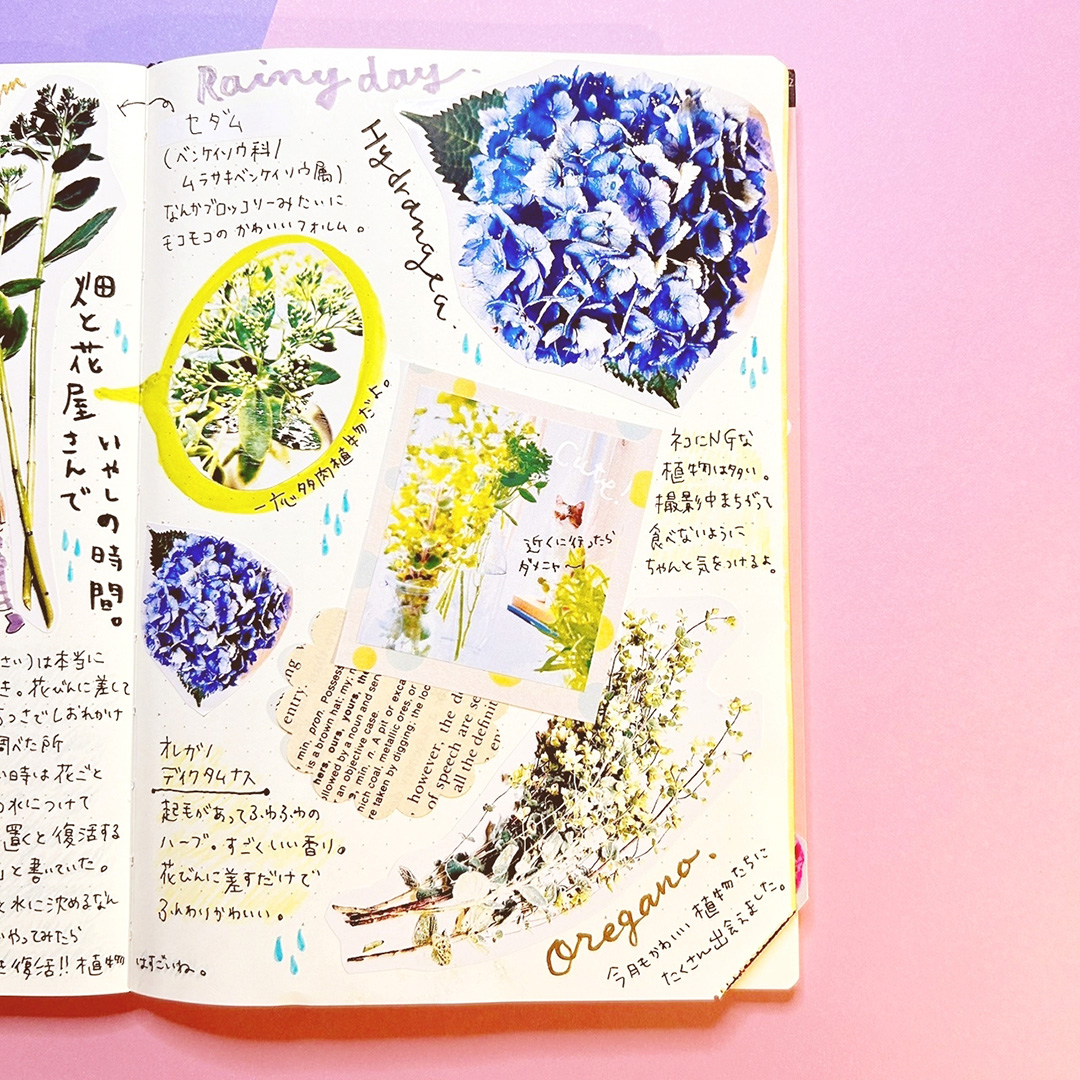 Rainy day.
セダム
(ベンケイソウ科/
ムラサキベンケイソウ属)
なんかブロッコリーみたいに
モコモコのかわいいフォルム。
Hydrangea.
畑と花屋さんで
いやしの時間。
一応多肉植物だよ。
Cute!
近くに行ったら
ダメニャ〜!
ネコにNGな
植物は多い。
撮影中まちがって
食べないように
ちゃんと気をつけるよ。
さい)は本当に
き。花びんに差して
つさでしおれかけ
調べた所
い時は花ごと
水につけて
置くと復活する
」と書いていた。
と水に沈めるなん
やってみたら
復活!! 植物はすごいね。
entry.
min, pron. Possess
is a brown hat; my
hers, ours, yours, th
ollowed by a noun and sen
an objective case.
9, min, n. A pit or exca
nich coal, metallic ores, or
re taken by digging; the loc
however, the d
of speech are se
all the definit
オレガノ
ディクタムナス
起毛があってふわふわの
ハーブ。すごくいい香り。
花びんに差すだけで
ふんわりかわいい。
Oregano.
今月もかわいい植物たちに
たくさん出会えました。